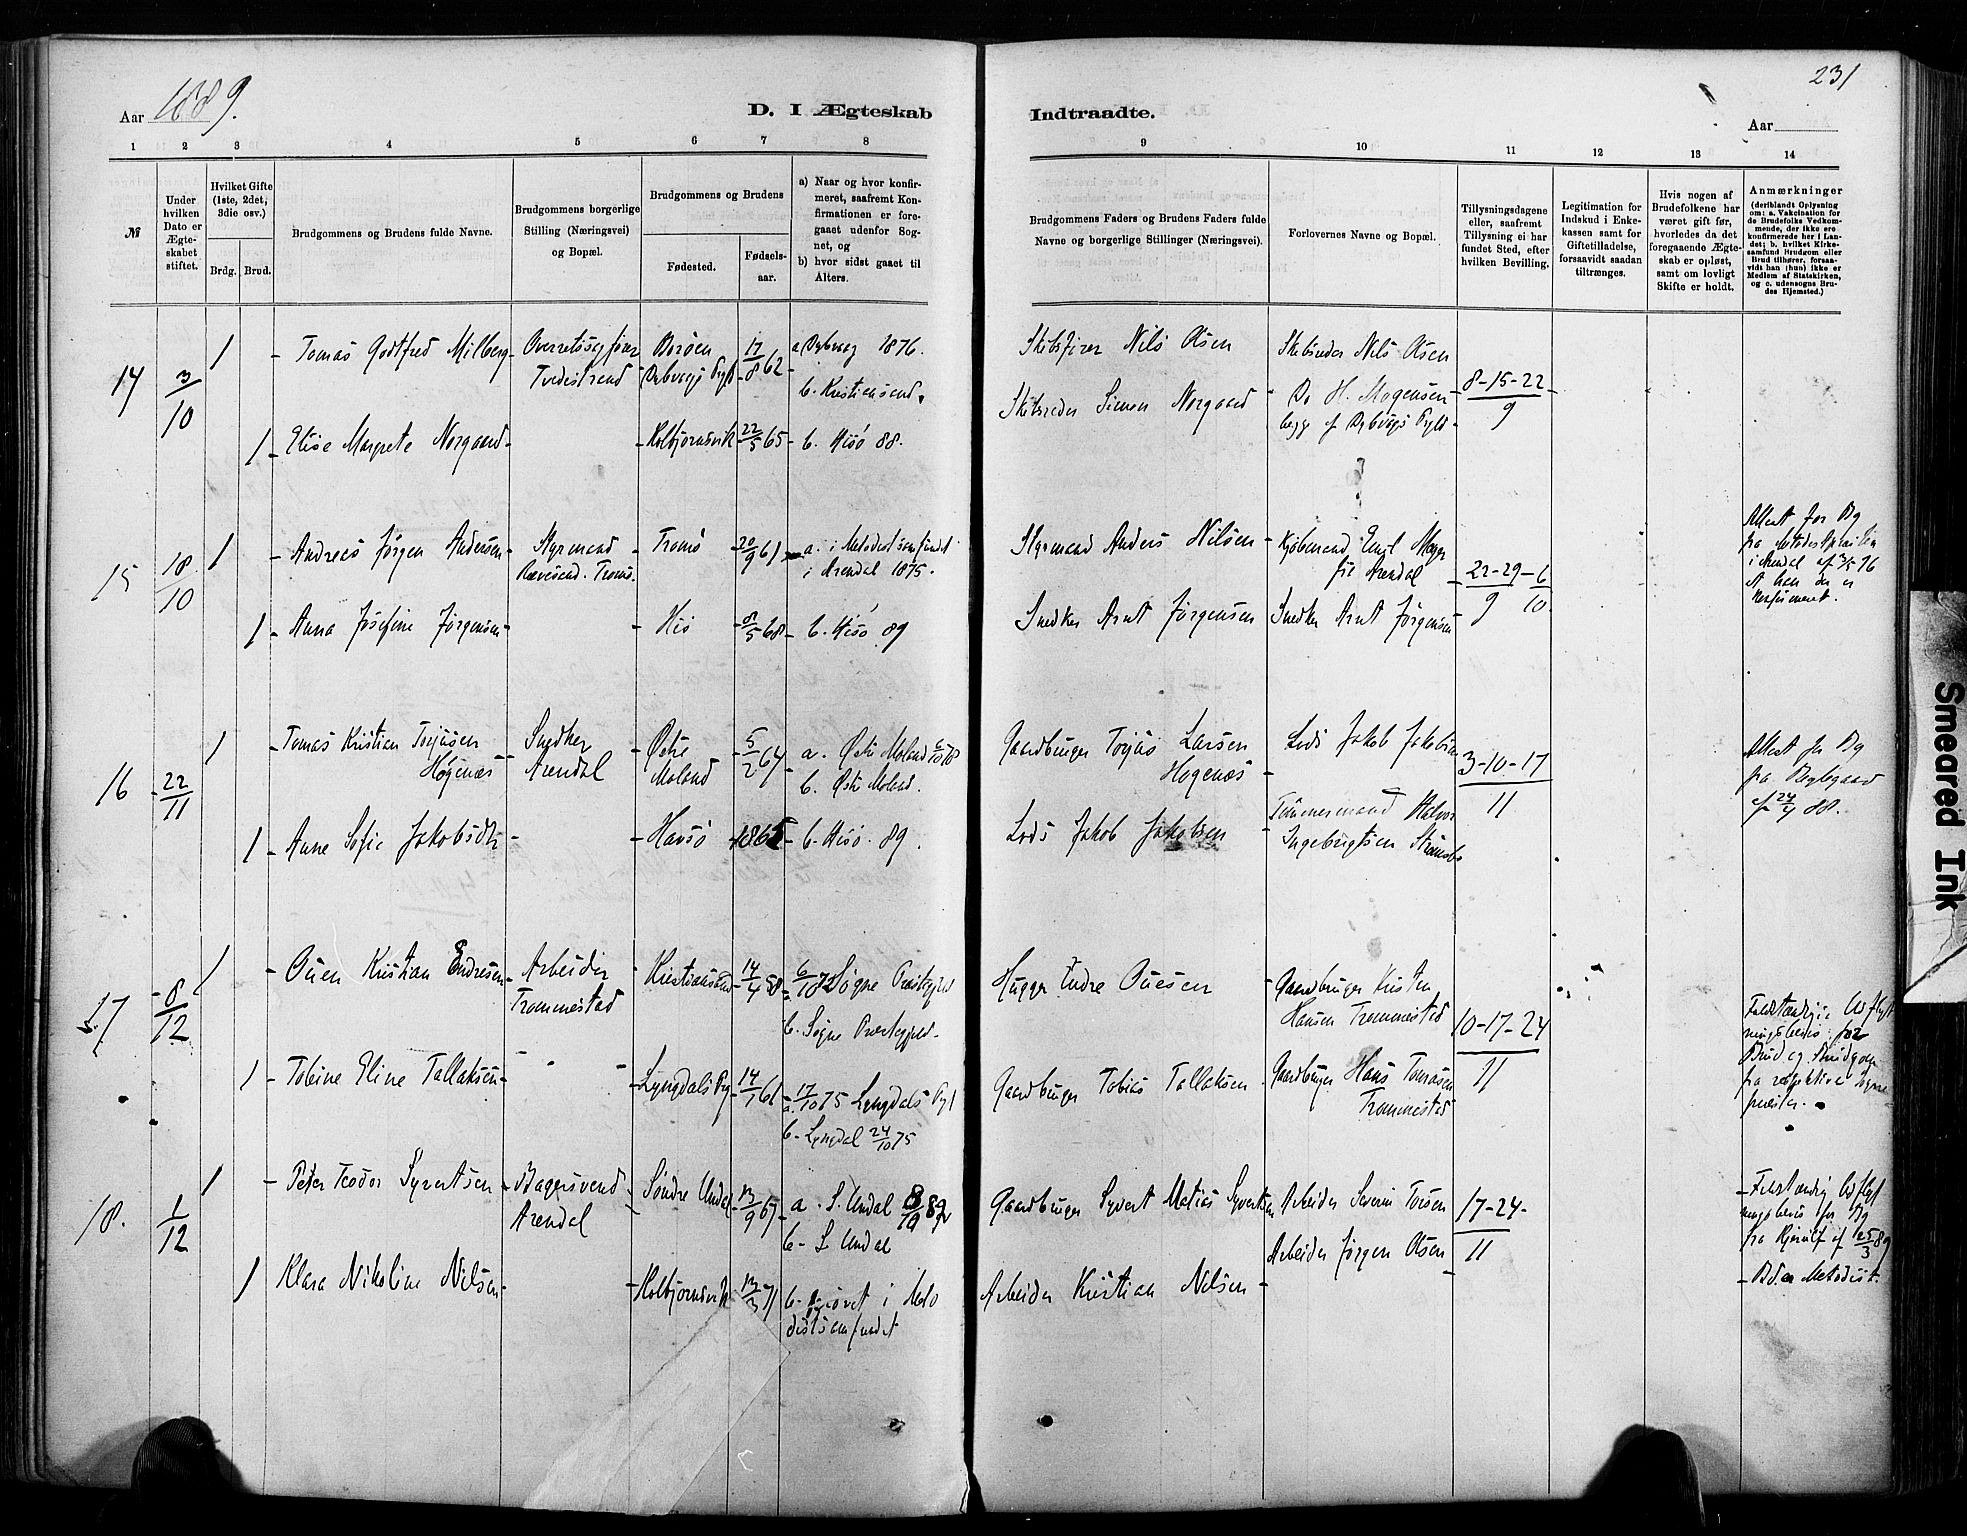 Aar 1889.
D. I Ægteskab
Indtraadte.
231
Aar
1 2 3 4 5 6 7 8
9 10 11 12 13 14
№
Under hvilken Dato er Ægteskabet stiftet.
Hvilket Gifte (1ste, 2det, 3die osv.)
Brdg. Brud.
Brudgommens og Brudens fulde Navne.
Brudgommens borgerlige Stilling (Næringsvei) og Bopæl.
Brudgommens og Brudens
Fødested.
Fødselsaar.
a) Naar og hvor konfirmeret, saafremt Konfirmationen er foregaaet udenfor Sognet, og
b) hvor sidst gaaet til Alters.
Brudgommens Faders og Brudens Faders fulde Navne og borgerlige Stillinger (Næringsvei).
Forlovernes Navne og Bopæl.
Tillysningsdagene eller, saafremt Tillysning ei har fundet Sted, efter hvilken Bevilling.
Legitimation for Indskud i Enkekassen samt for Giftetilladelse, forsaavidt saadan tiltrænges.
Hvis nogen af Brudefolkene har været gift før, hvorledes da det foregaaende Ægteskab er opløst, samt om lovligt Skifte er holdt.
Anmærkninger
(deriblandt Oplysning om: a. Vakcination for de Brudefolks Vedkommende, der ikke ere konfirmerede her i Landet; b. hvilket Kirkesamfund Brudgom eller Brud tilhører, forsaavidt han (hun) ikke er Medlem af Statskirken, og c. udensogns Brudes Hjemsted.)
14 3/10 1 Tomas Godtfred Milberg Overretssagfører Tvedestrand Borøen Dybvågs Pgld 17/8 62 a Dybvåg 1876. b. Kristiansand.
Skibsfører Nils Olsen
Skibsreder Nils Olsen
8-15-22/9
1 Elise Margrete Norgaard Kolbjørnsvik 22/5 65 b. Hisø 88.
Skibsreder Simon Norgaard
Do H. Mogensen begge af Dybvågs Pgld
15 18/10 1 Andreas Jørgen Andersen Styrmand Revesand. Tromø. Tromø 20/9 61 a. i Metodistsamfundet i Arendal 1875.
Styrmand Anders Nilsen
Kjøbmand Emil Arendal
22-29/9 - 6/10
Attest for Bg fra i Arendal af 76 At han der er konfirmeret.
1 Anna Josefine Jørgensen Hisø 8/5 68 b. Hisø 89
Snedker Arnt Jørgensen
Snedker Arnt Jørgensen
16 22/11 1 Tomas Kristian Torjusen Høgenæs Snedker Arendal Østre Moland 5/2 64 a. Østre Moland 78 b. Østre Moland.
Gaardbruger Torjus Larsen Høgenæs
Lods Jakob Jakobsen
3-10-17/11
Attest for Bg fra 88.
1 Anne Sofie Jakobsdtr Havsø 1865 b. Hisø. 89.
Lods Jakob Jakobsen
Tømmermand Halvor Ingebrigtsen Strømsbo
17 8/12 1 Ouen Kristian Endresen Arbeider Trommestad Kristiansand 14/4 58 Søgne Præstegjeld b. Søgne Præstegjeld.
Hugger Endre Ouesen
Gaardbruger Kristen Hansen Trommestad
10-17-24/11
Fuldstændige Udflytningsbevis for Brud og Brudgom fra respektive Sognepræster.
1 Tobine Eline Tallaksen Lyngdals Pg 14/1 61 a. 17/10 75 Lyngdals Pgl b. Lyngdal 24/10 75
Gaardbruger Tobias Tallaksen
Gaardbruger Hans Tomasen Trommestad
18. 1/12 1 Peter Teodor Syvertsen Bagersvend Arendal Søndre Undal 13/9 67 a. S. Undal b. S. Undal
Gaardbruger Syvert Matias Syvertsen
Arbeider Severin Torsen
17-24/11
Fuldstændig Udflytningsbevis for Bg fra af 25/3 89
1 Klara Nikoline Nilsen Kolbjørnsvik 13/3 71 b. prøvet i Metodistsamfundet
Arbeider Kristian Nilsen
Arbeider Jørgen Olsen
Bd. er Metodist.
Smeared Ink